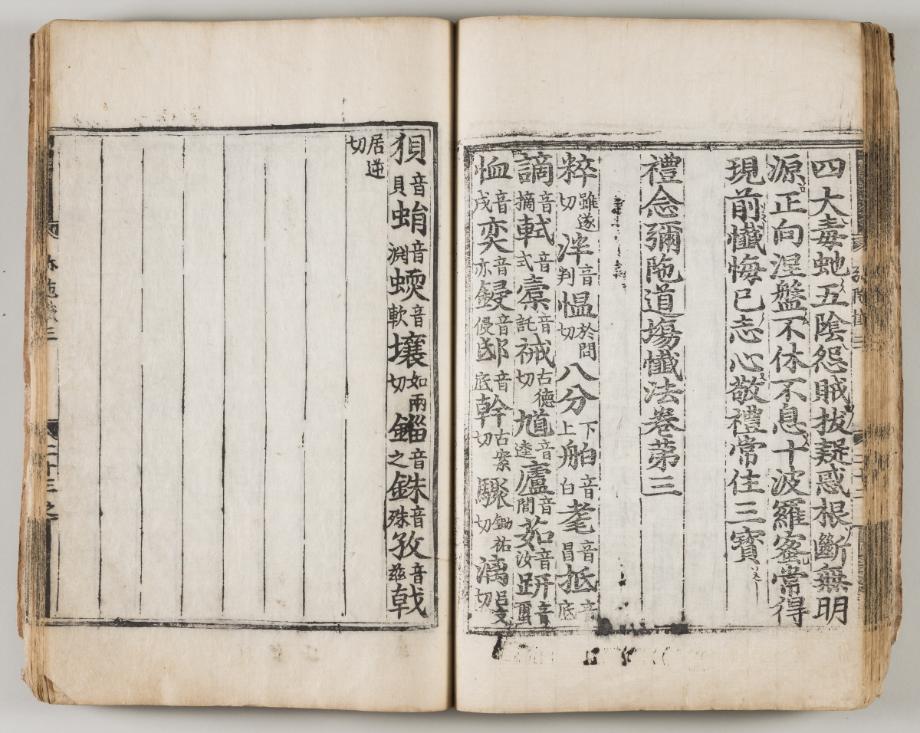 四大毒虵五陰怨賊拔疑惑根斷無明
源正向涅盤不休不息十波羅蜜常得
現前懺悔已志心敬禮常住三寶
禮念彌陁道塲懺法卷第三
粹雖遂切泮音判愠於問切八分上下舶音白耄音昌抵音底
謫音摘軾音式橐音託裓古德切馗音逵廬音閭茹音汝趼音
恤音戌奕音亦鋟音侵邸音底幹古案切驟鋤祐切漓呂支切
狽音貝蜎音渊蝡音軟壤如兩切錙音之銖音殊孜音兹戟
居逆切